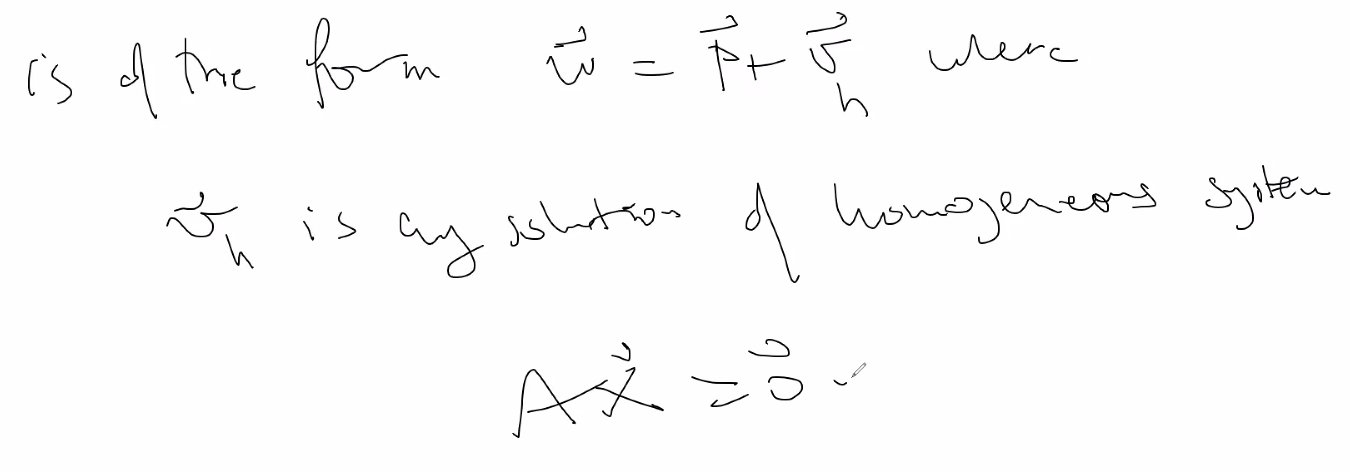 is of the form w⃗ = p⃗ + v⃗ₕ where
v⃗ₕ is any solution of homogeneous system
Ax⃗ = 0⃗.